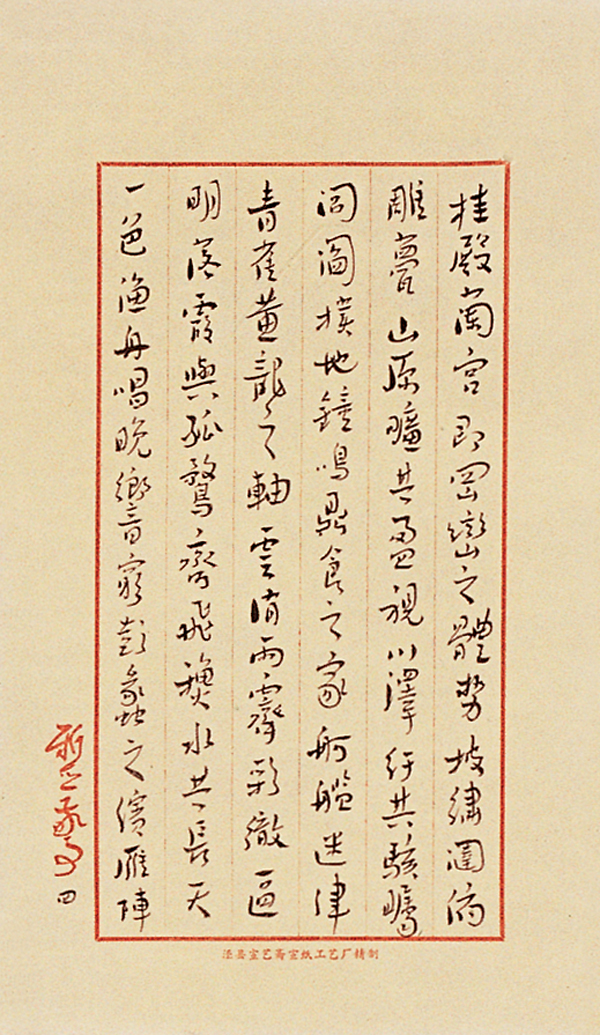 桂殿蘭宮即岡巒之體勢披繡闥俯
雕甍山原曠其盈視川澤紆其駭矚
閭閻撲地鐘鳴鼎食之家舸艦迷津
青雀黃龍之軸雲消雨霽彩徹區
明落霞與孤鶩齊飛秋水共長天
一色漁舟唱晚響窮彭蠡之濱雁陣
四
泾县宣艺斋宣纸工艺厂精制